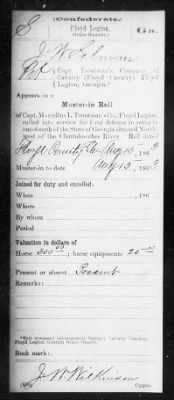 (Confederate.)
S Floyd Legion, Ga.
(State Guards.)
J. W.
Pvt., Capt. Troutman's Company of
Cavalry (Floyd Cavalry), Floyd
Legion, Georgia.*
Appears on a
Muster-in Roll
of Capt. Marcellus L. Troutman's Co., Floyd Legion,
called into service for local defence to serve in
one-fourth of the State of Georgia situated North-
west of the Chattahoochee River. Roll dated
Floyd County, Ga., Aug 13, 1863
Muster-in to date Aug 13, 1863
Joined for duty and enrolled:
When , 186
Where
By whom
Period
Valuation in dollars of
Horse, 300.00; horse equipments, 20.00
Present or absent Present
Remarks:
*This company subsequently became Cavalry Company,
Floyd Legion, Georgia State Guards.
Book mark:
J. W. Wilkinson
Copyist.